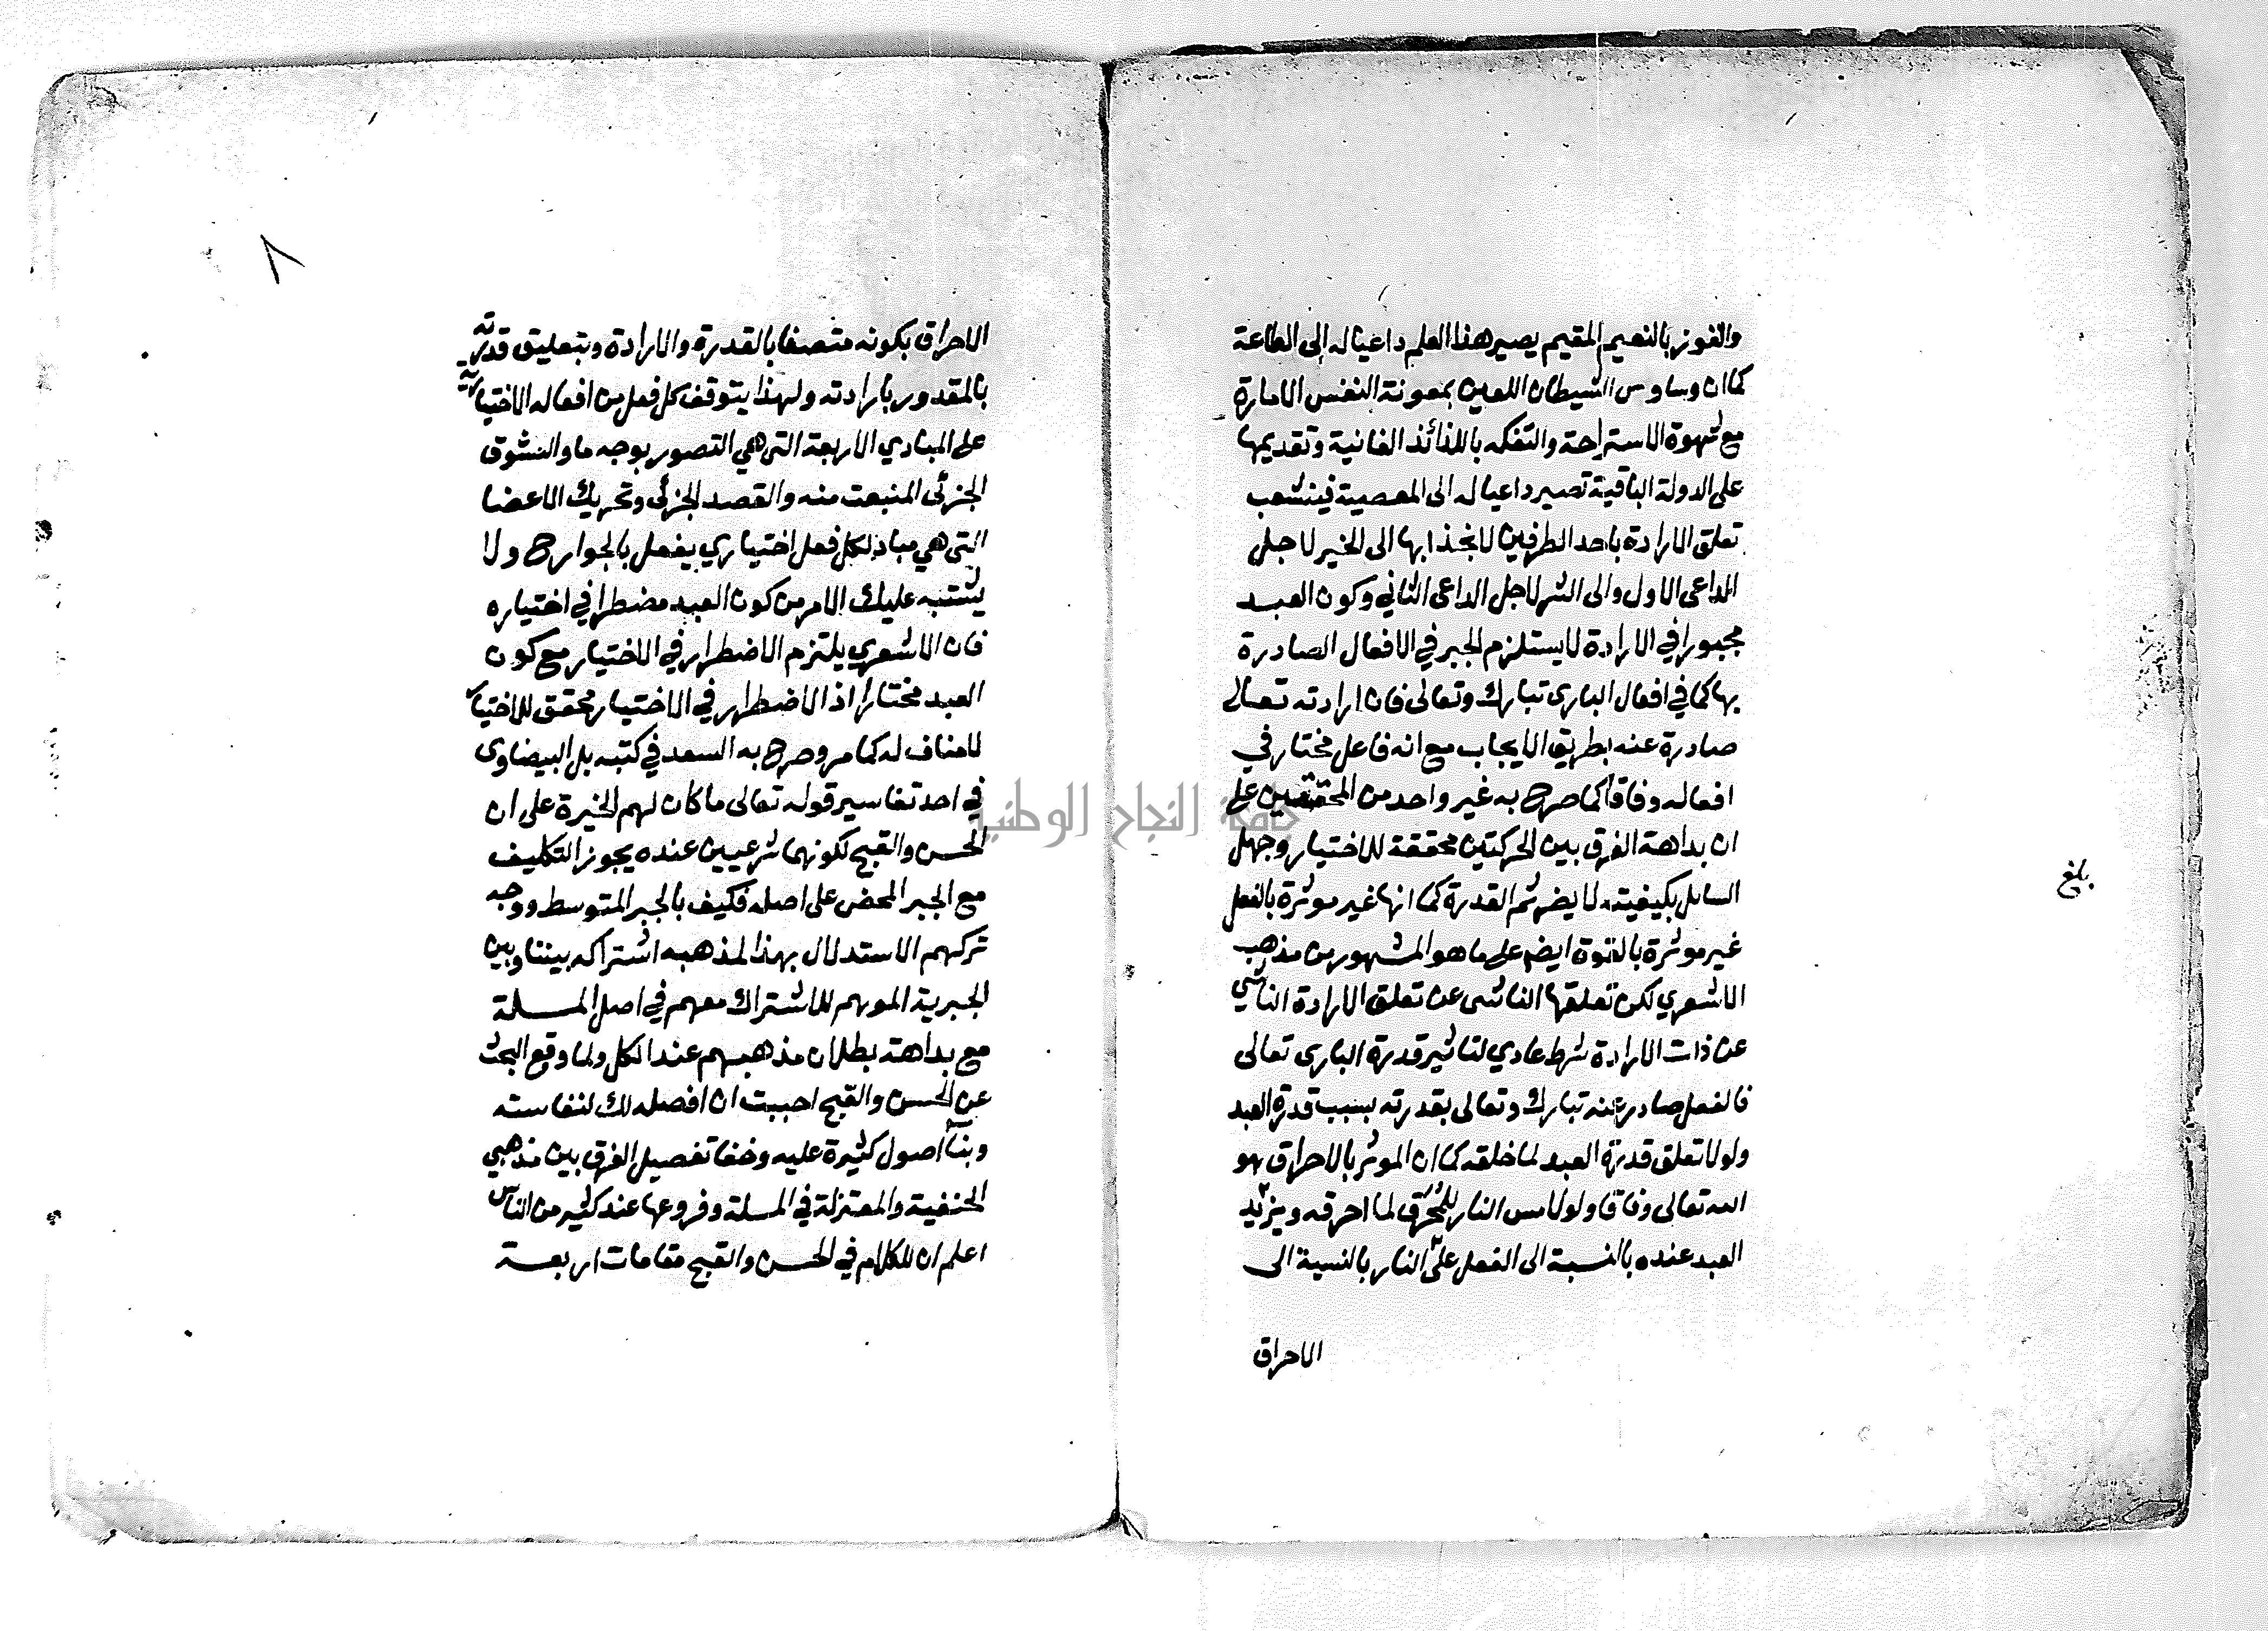 والفوز بالنعيم المقيم يصير هذا العلم داعيا له الى الطاعة
كما ان وساوس الشيطان اللعين بمعونة النفس الامارة
مع شهوة الاستراحة والتفكه باللذائذ الفانية وتقديمها
على الدولة الباقية تصير داعيا له الى المعصية فينشعب
تعلق الارادة باحد الطرفين لانجذابها الى الخير لاجل
الداعى الاول والى الشر لاجل الداعى الثاني وكون العبد
مجبورا في الارادة لا يستلزم الجبر في الافعال الصادرة
بها كما في افعال البارى تبارك وتعالى فان ارادته تعالى
صادرة عنه بطريق الايجاب مع انه فاعل مختار في
افعاله وفاقا كما صرح به غير واحد من المحققين على
ان بداهة الفرق بين الحركتين محققة للاختيار وجهل
السايل بكيفيته لا يضر ثم القدرة كما انها غير موثرة بالفعل
غير موثرة بالقوة ايضا على ما هو المشهور من مذهب
الاشعري لكن تعلقها الناشى عن تعلق الارادة الناشي
عن ذات الارادة شرط عادي لتاثير قدرة البارى تعالى
فالفعل صادر عنه تبارك وتعالى بقدرته بسبب قدرة العبد
ولولا تعلق قدرة العبد لما خلقه كما ان الموثر بالاحراق هو
الله تعالى وفاقا ولولا مس النار للمحرق لما احرقه ويزيد
العبد عنده بالنسبة الى الفعل على النار بالنسبة الى
الاحراق
بلغ
٨
الاحراق بكونه متصفا بالقدرة والارادة وبتعليق قدرته
بالمقدور بارادته ولهذا يتوقف كل فعل من افعاله الاختيارية
على المبادي الاربعة التى هي التصور بوجه ما والتشوق
الجزئى المنبعث منه والقصد الجزئى وتحريك الاعضا
التى هي مباد لكل فعل اختياري يفعل بالجوارح ولا
يشتبه عليك الامر من كون العبد مضطرا في اختياره
فان الاشعري يلتزم الاضطرار في الاختيار مع كون
العبد مختارا اذ الاضطرار في الاختيار محقق للاختيار
لا مناف له كما مر وصرح به السعد في كتبه بل البيضاوى
في احد تفاسير قوله تعالى ما كان لهم الخيرة على ان
الحسن والقبح لكونهما شرعيين عنده يجوز التكليف
مع الجبر المحض على اصله فكيف بالجبر المتوسط ووجه
تركهم الاستدلال بهذا لمذهبه اشتراكه بيننا وبين
الجبرية الموهم للاشتراك معهم في اصل المسلة
مع بداهة بطلان مذهبهم عند الكل ولما وقع البحث
عن الحسن والقبح احببت ان افصله لك لنفاسته
وبنآ اصول كثيرة عليه وخفا تفصيل الفرق بين مذهبي
الحنفية والمعتزلة في المسلة وفروعها عند كثير من الناس
اعلم ان للكلام في الحسن والقبح مقامات اربعة
جامعة النجاح الوطنية